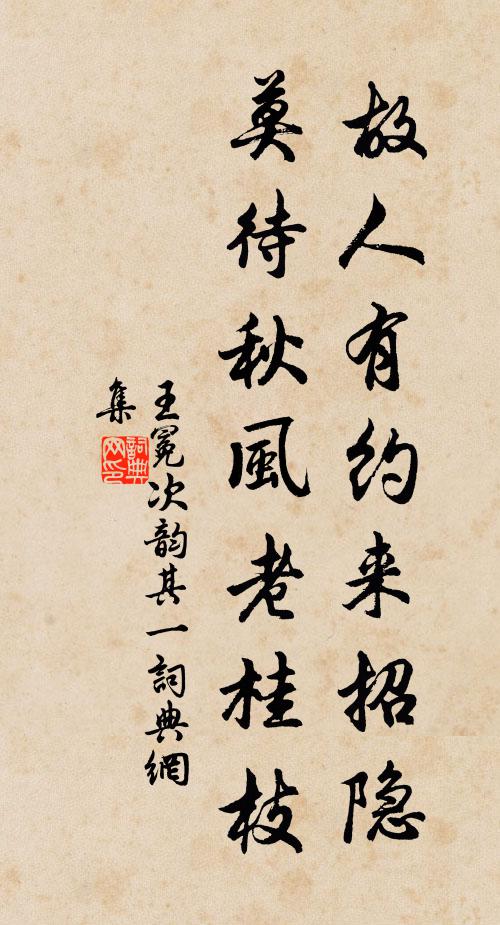 故人有约来招隐
莫待秋風老桂枝
王冕次韵其一詞典網
集
詞典
网印